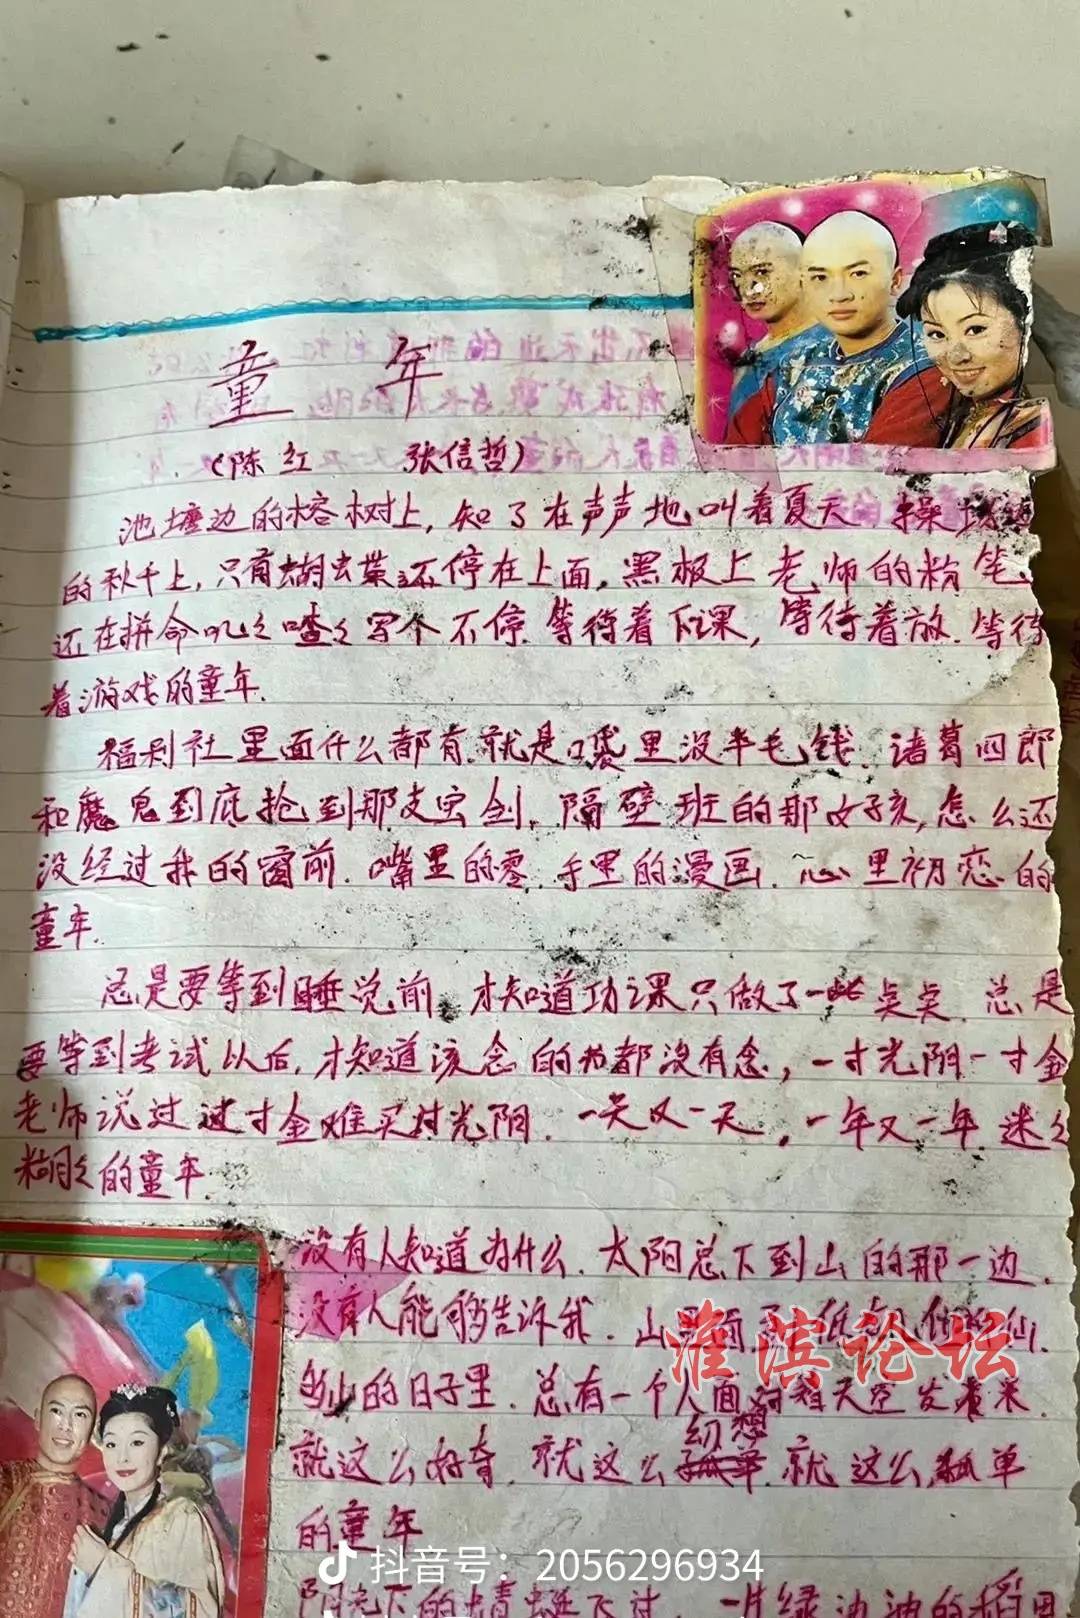 童年
(陈红 张信哲)
池塘边的榕树上，知了在声声地叫着夏天 操场边
的秋千上，只有蝴蝶还停在上面，黑板上老师的粉笔、
还在拼命叽々喳々写个不停.等待着下课，等待着放.等待
着游戏的童年.
福利社里面什么都有.就是口袋里没半毛钱.诸葛四郎
和魔鬼到底抢到那支宝剑.隔壁班的那女孩，怎么还
没经过我的窗前.嘴里的零.手里的漫画.心里初恋的
童年.
总是要等到睡觉前.才知道功课只做了一些点点.总是
要等到考试以后，才知道该念的书都没有念，一寸光阴一寸金
老师说过过寸金难买寸光阴.一天又一天，一年又一年.迷々
糊々的童年.
没有人知道为什么.太阳总下到山的那一边.
没有人能够告诉我.山里面
的日子里.总有一个人面对着天空发着呆.
幻想
就这么好奇.就这么 就这么孤单
的童年
阳光下的蜻蜓飞过.一片绿油油的稻田
淮滨论坛
抖音号：2056296934